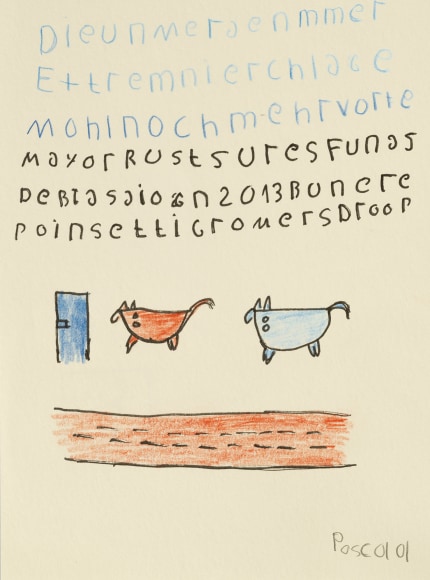 Dieunmersenmmer
Extremnierchlace
mohlnochmehrvorte
mayorRUstsuresFunds
DeBtasaionn2013Buncre
poinsetticromersDroop
Pascol 01